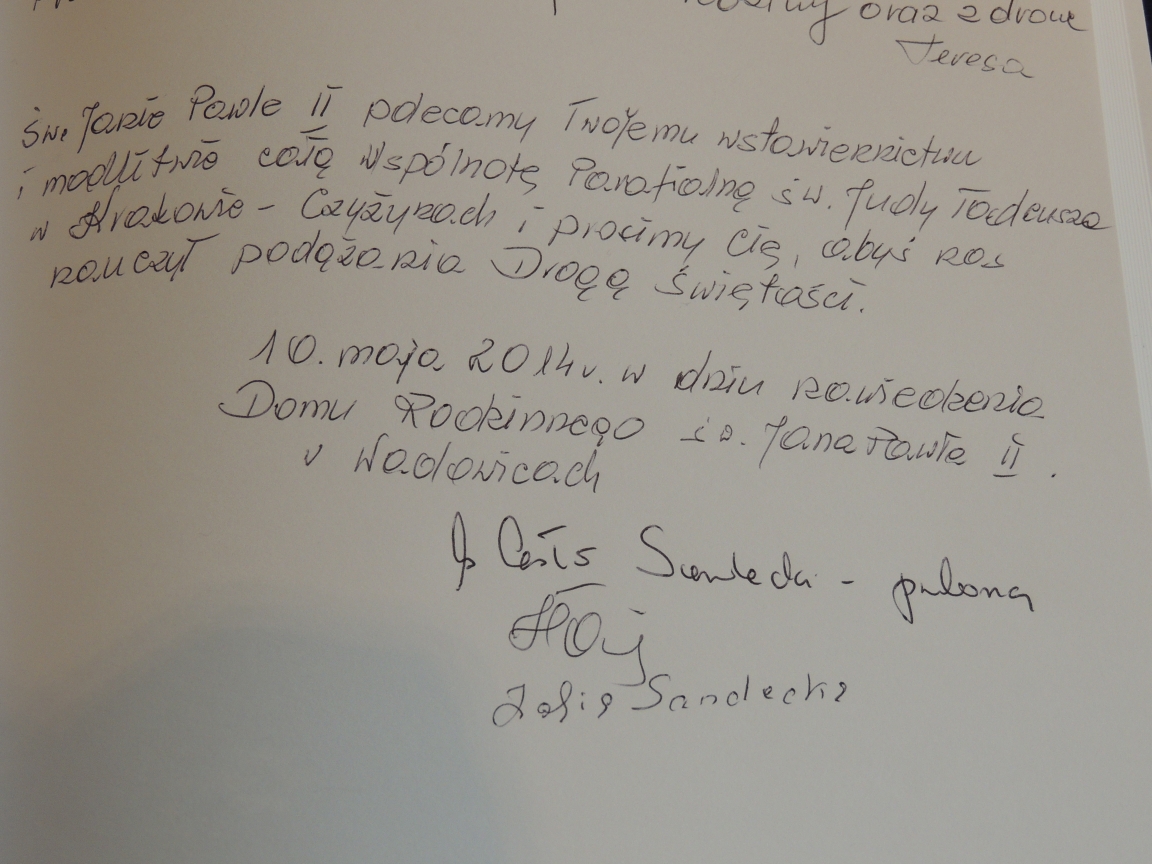 oraz zdrowie
Teresa
Św. Janie Pawle II polecamy Twojemu wstawiennictwu
i modlitwie całą Wspólnotę Parafialną św. Judy Tadeusza
w Krakowie - Czyżynach i prosimy Cię, abyś nas
nauczył podążania Drogą Świętości.
10. maja 2014r. w dniu nawiedzenia
Domu Rodzinnego św. Jana Pawła II.
w Wadowicach
Zofia Sandecka